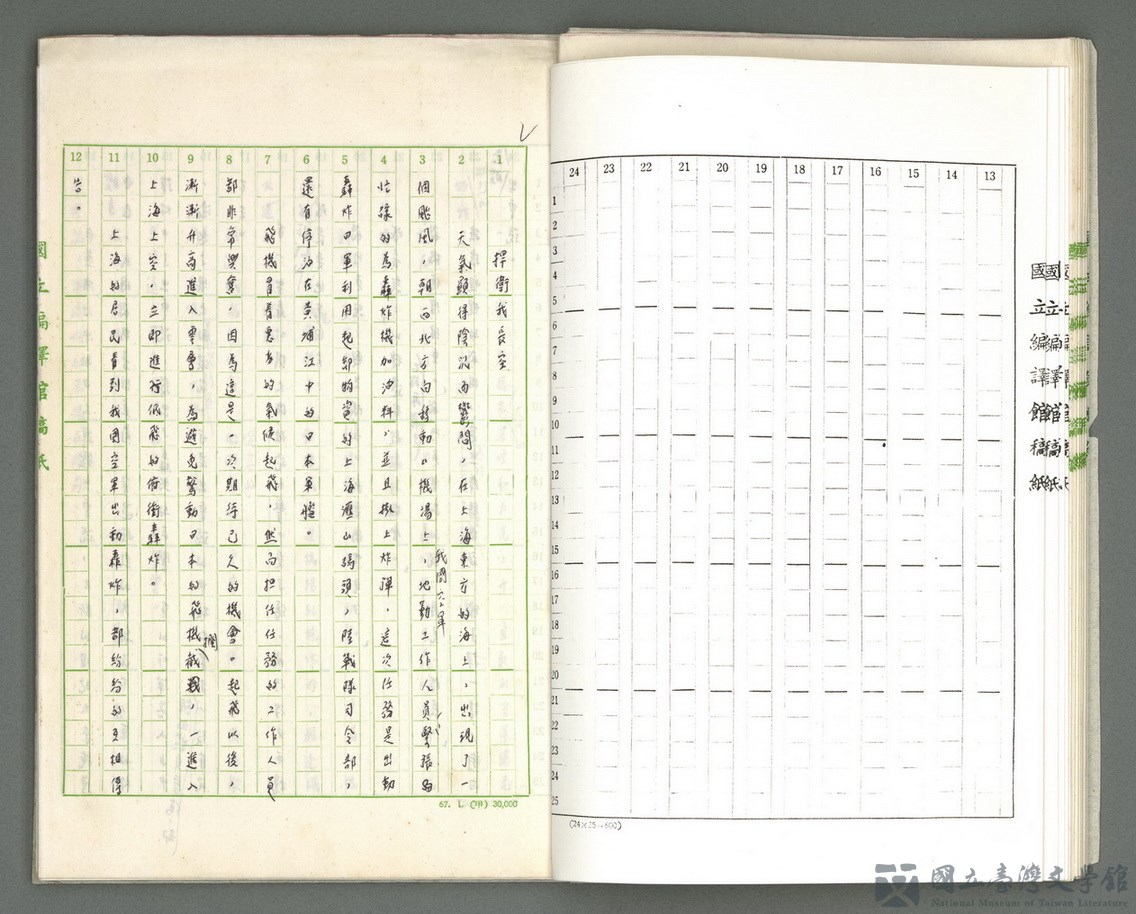 13
14
15
16
17
18
19
20
21
22
23
24
1
2
3
4
5
6
7
8
9
10
11
12
13
14
15
16
17
18
19
20
21
22
23
24
25
國立編譯館稿紙
(24×25=600)
1
2
3
4
5
6
7
8
9
10
11
12
捍衛我長空
天氣顯得陰沉而鬱悶,在上海東方的海上,出現了一
個颱風,朝西北方向移動。機場上,我國空軍地勤工作人員緊張
忙碌的為轟炸機加油料,並且掛上炸彈,這次任務是出動
轟炸日軍利用起卸物資的上海滙山碼頭,陸戰隊司令部,
還有停泊在黃埔江中的日本軍艦。
飛機冒着惡劣的氣候起飛,然而担任任務的工作人員
都非常興奮,因為這是一次期待已久的機會。起飛以後,
漸漸升高進入雲層,為避免驚動日本的飛機攔截,一進入
上海上空,立即進行低飛的俯衝轟炸。
上海的居民看到我國空軍出動轟炸,都紛紛的互相傳
告。
67. 1. (甲) 30,000
國立編譯館稿紙
國立臺灣文學館
National Museum of Taiwan Literature